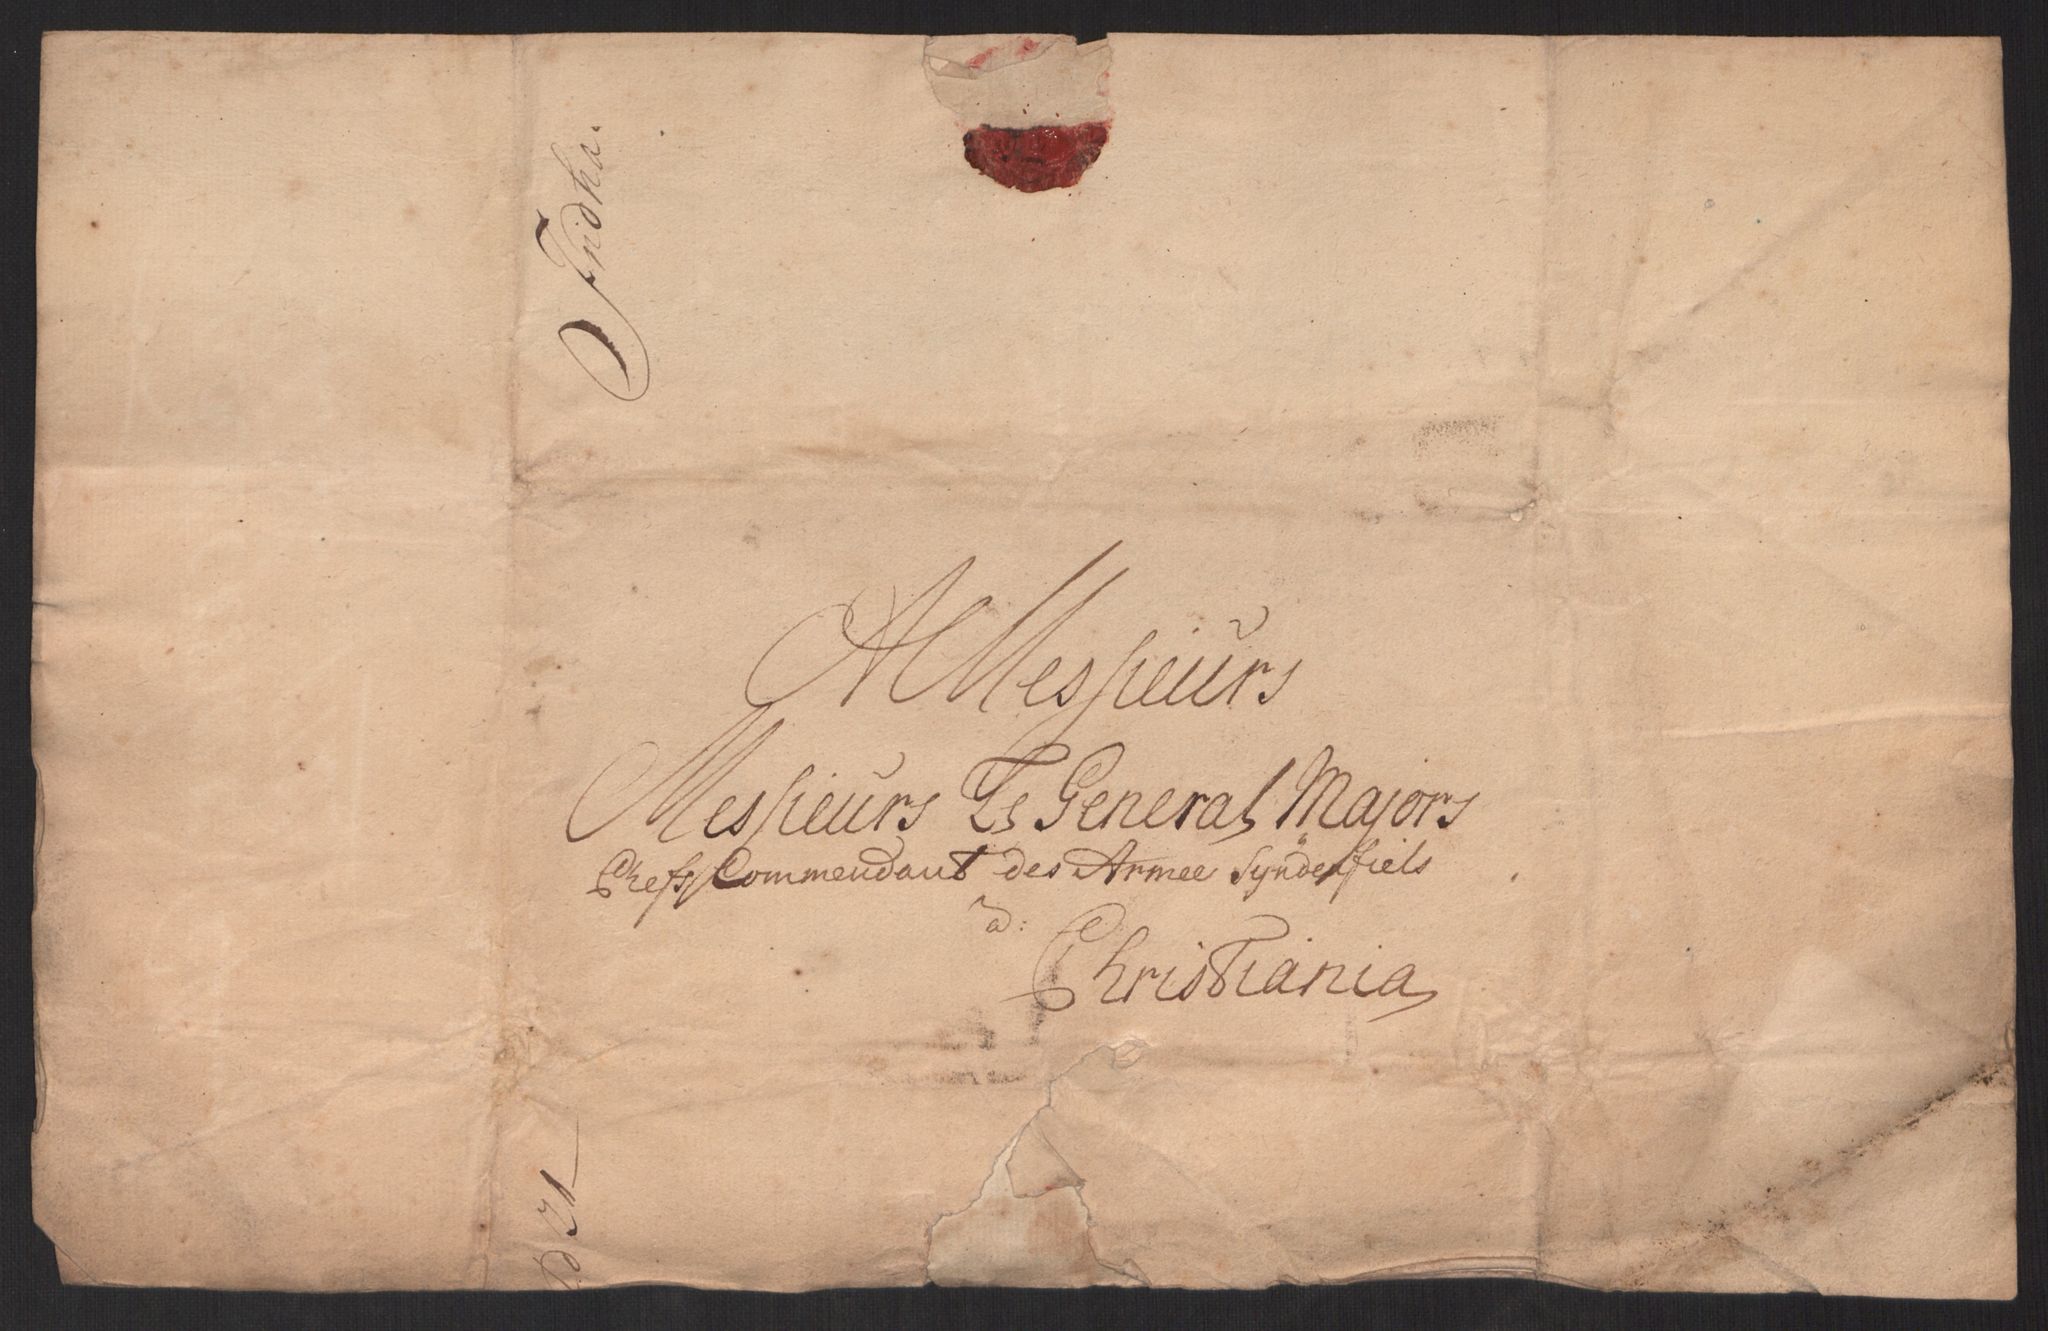 A Messieurs
Messieurs Ls General Majors
Chefs Commendant des Armee Syndenfiels
a:
Christiania